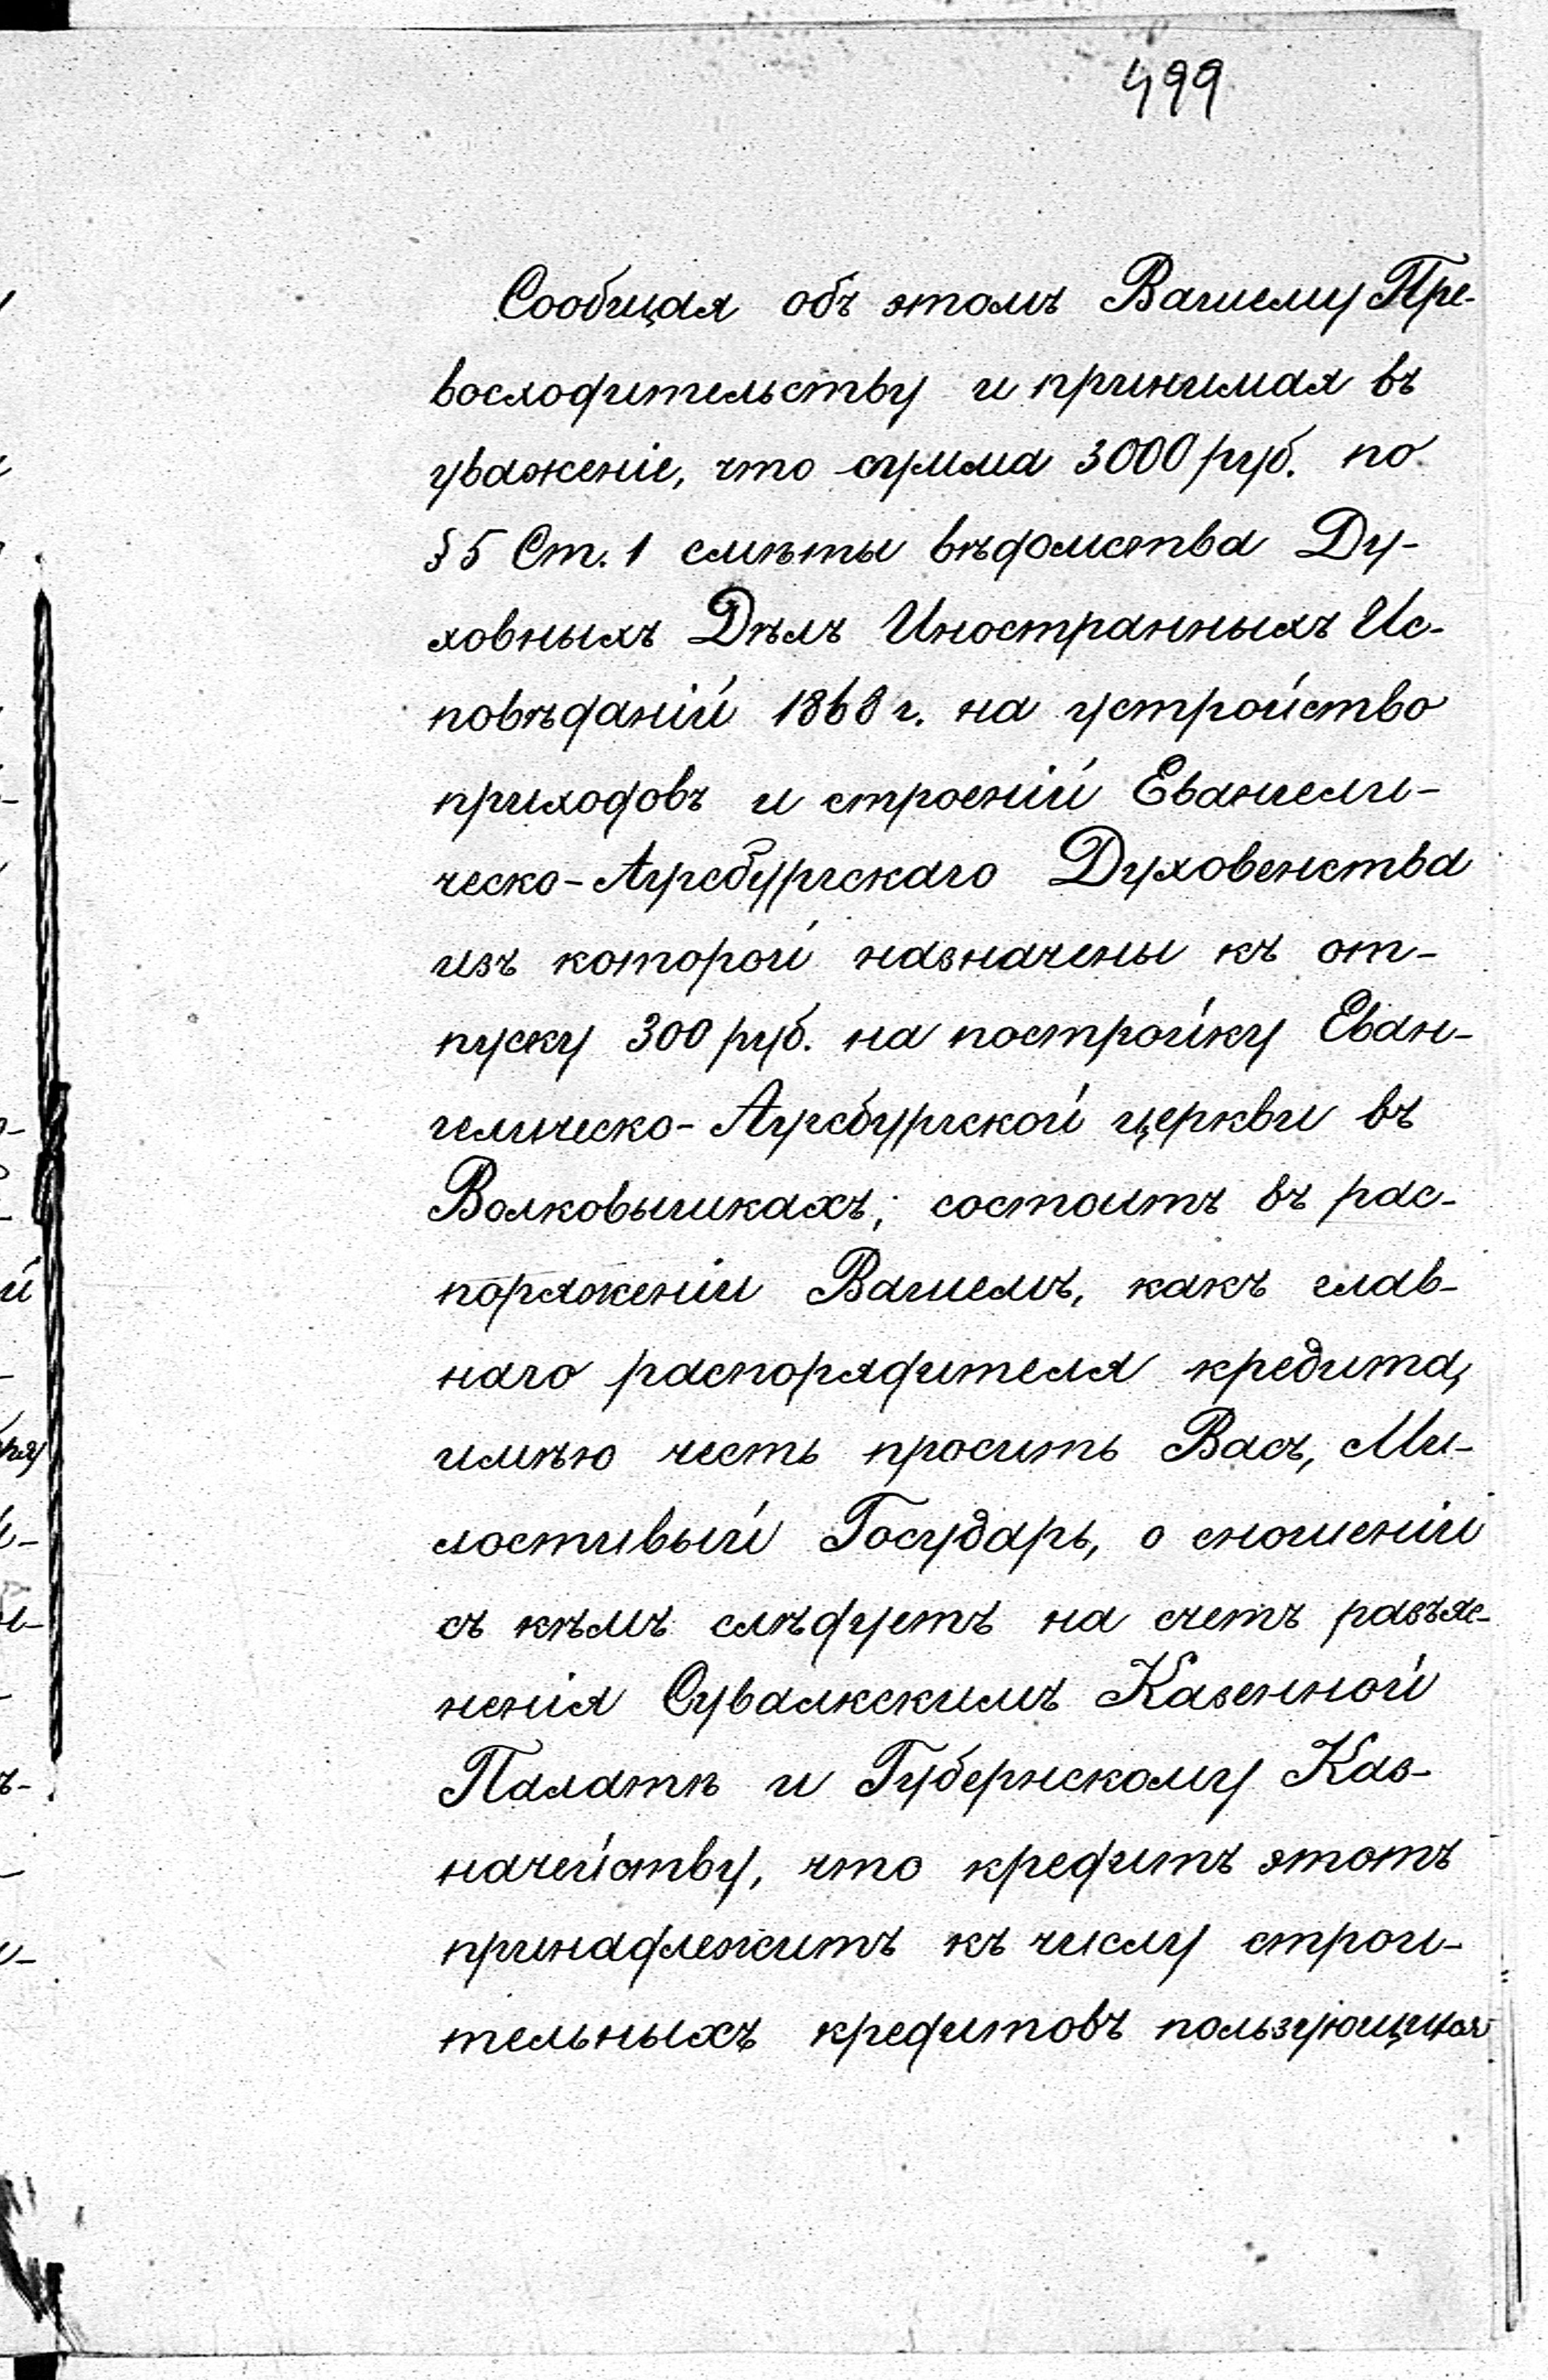 499
Сообщая объ этомъ Вашему Пре-
восходительству и принимая въ
уваженіе, что сумма 3000 руб. по
§ 5 Ст. 1 смѣты вѣдомства Ду-
ховныхъ Дѣлъ Иностранныхъ Ис-
повѣданій 1868 г. на устройство
приходовъ и строеній Евангели-
ческо-Аугсбургскаго Духовенства
изъ которой назначены къ от-
пуску 300 руб. на постройку Еван-
гелическо-Аугсбургской церкви въ
Волковышкахъ; состоитъ въ рас-
поряженіи Вашемъ, какъ глав-
наго распорядителя кредита,
имѣю честь просить Васъ, Ми-
лостивый Государь, о сношеніи
съ кѣмъ слѣдуетъ на счетъ разъяс-
ненія Сувалкскимъ Казенной
Палатѣ и Губернскому Каз-
начейству, что кредитъ этотъ
принадлежитъ къ числу строи-
тельныхъ кредитовъ пользующихся